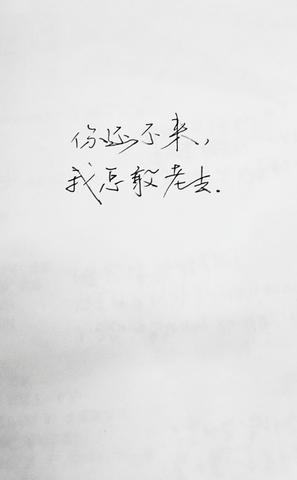 你还不来,
我怎敢老去.